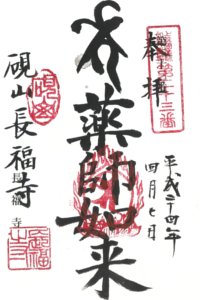 奉拝
第二十三番
平成二十四年
四月七日
薬師如来
硯山長福寺